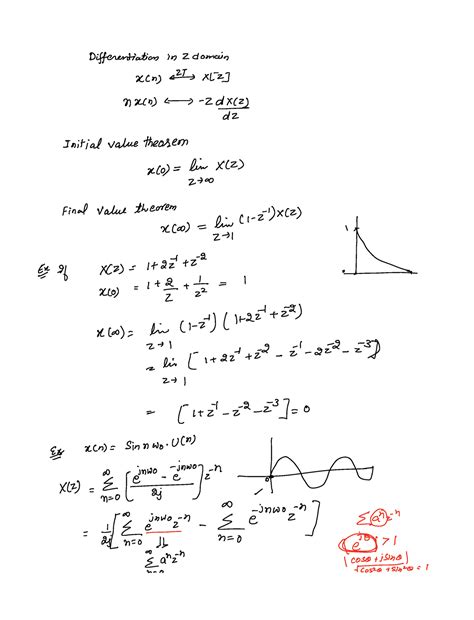 Differentiation in Z domain
x(n) ←ZT→ X[Z]
n x(n) ←→ -Z dX(Z)/dZ
Initial value theorem
x(0) = lim Z→∞ X(Z)
Final value theorem
x(∞) = lim Z→1 (1-Z⁻¹)X(Z)
1
Ex If X(Z) = 1+2Z⁻¹+Z⁻²
x(0) = 1 + 2/Z + 1/Z² = 1
x(∞) = lim Z→1 (1-Z⁻¹)(1+2Z⁻¹+Z⁻²)
= lim Z→1 [1+2Z⁻¹+Z⁻² - Z⁻¹ - 2Z⁻² - Z⁻³]
= [1+Z⁻¹-Z⁻²-Z⁻³] = 0
Ex x(n) = Sin nω₀ · U(n)
X(Z) = ∞ Σ n=0 [(e^jnω₀ - e^-jnω₀)/2j] Z⁻ⁿ
= 1/2j [∞ Σ n=0 e^jnω₀ Z⁻ⁿ - ∞ Σ n=0 e^-jnω₀ Z⁻ⁿ]
Σ aⁿ Z⁻ⁿ
Σ aⁿ Z⁻ⁿ
e^jθ > 1
|cosθ + jsinθ|
√cos²θ + sin²θ = 1